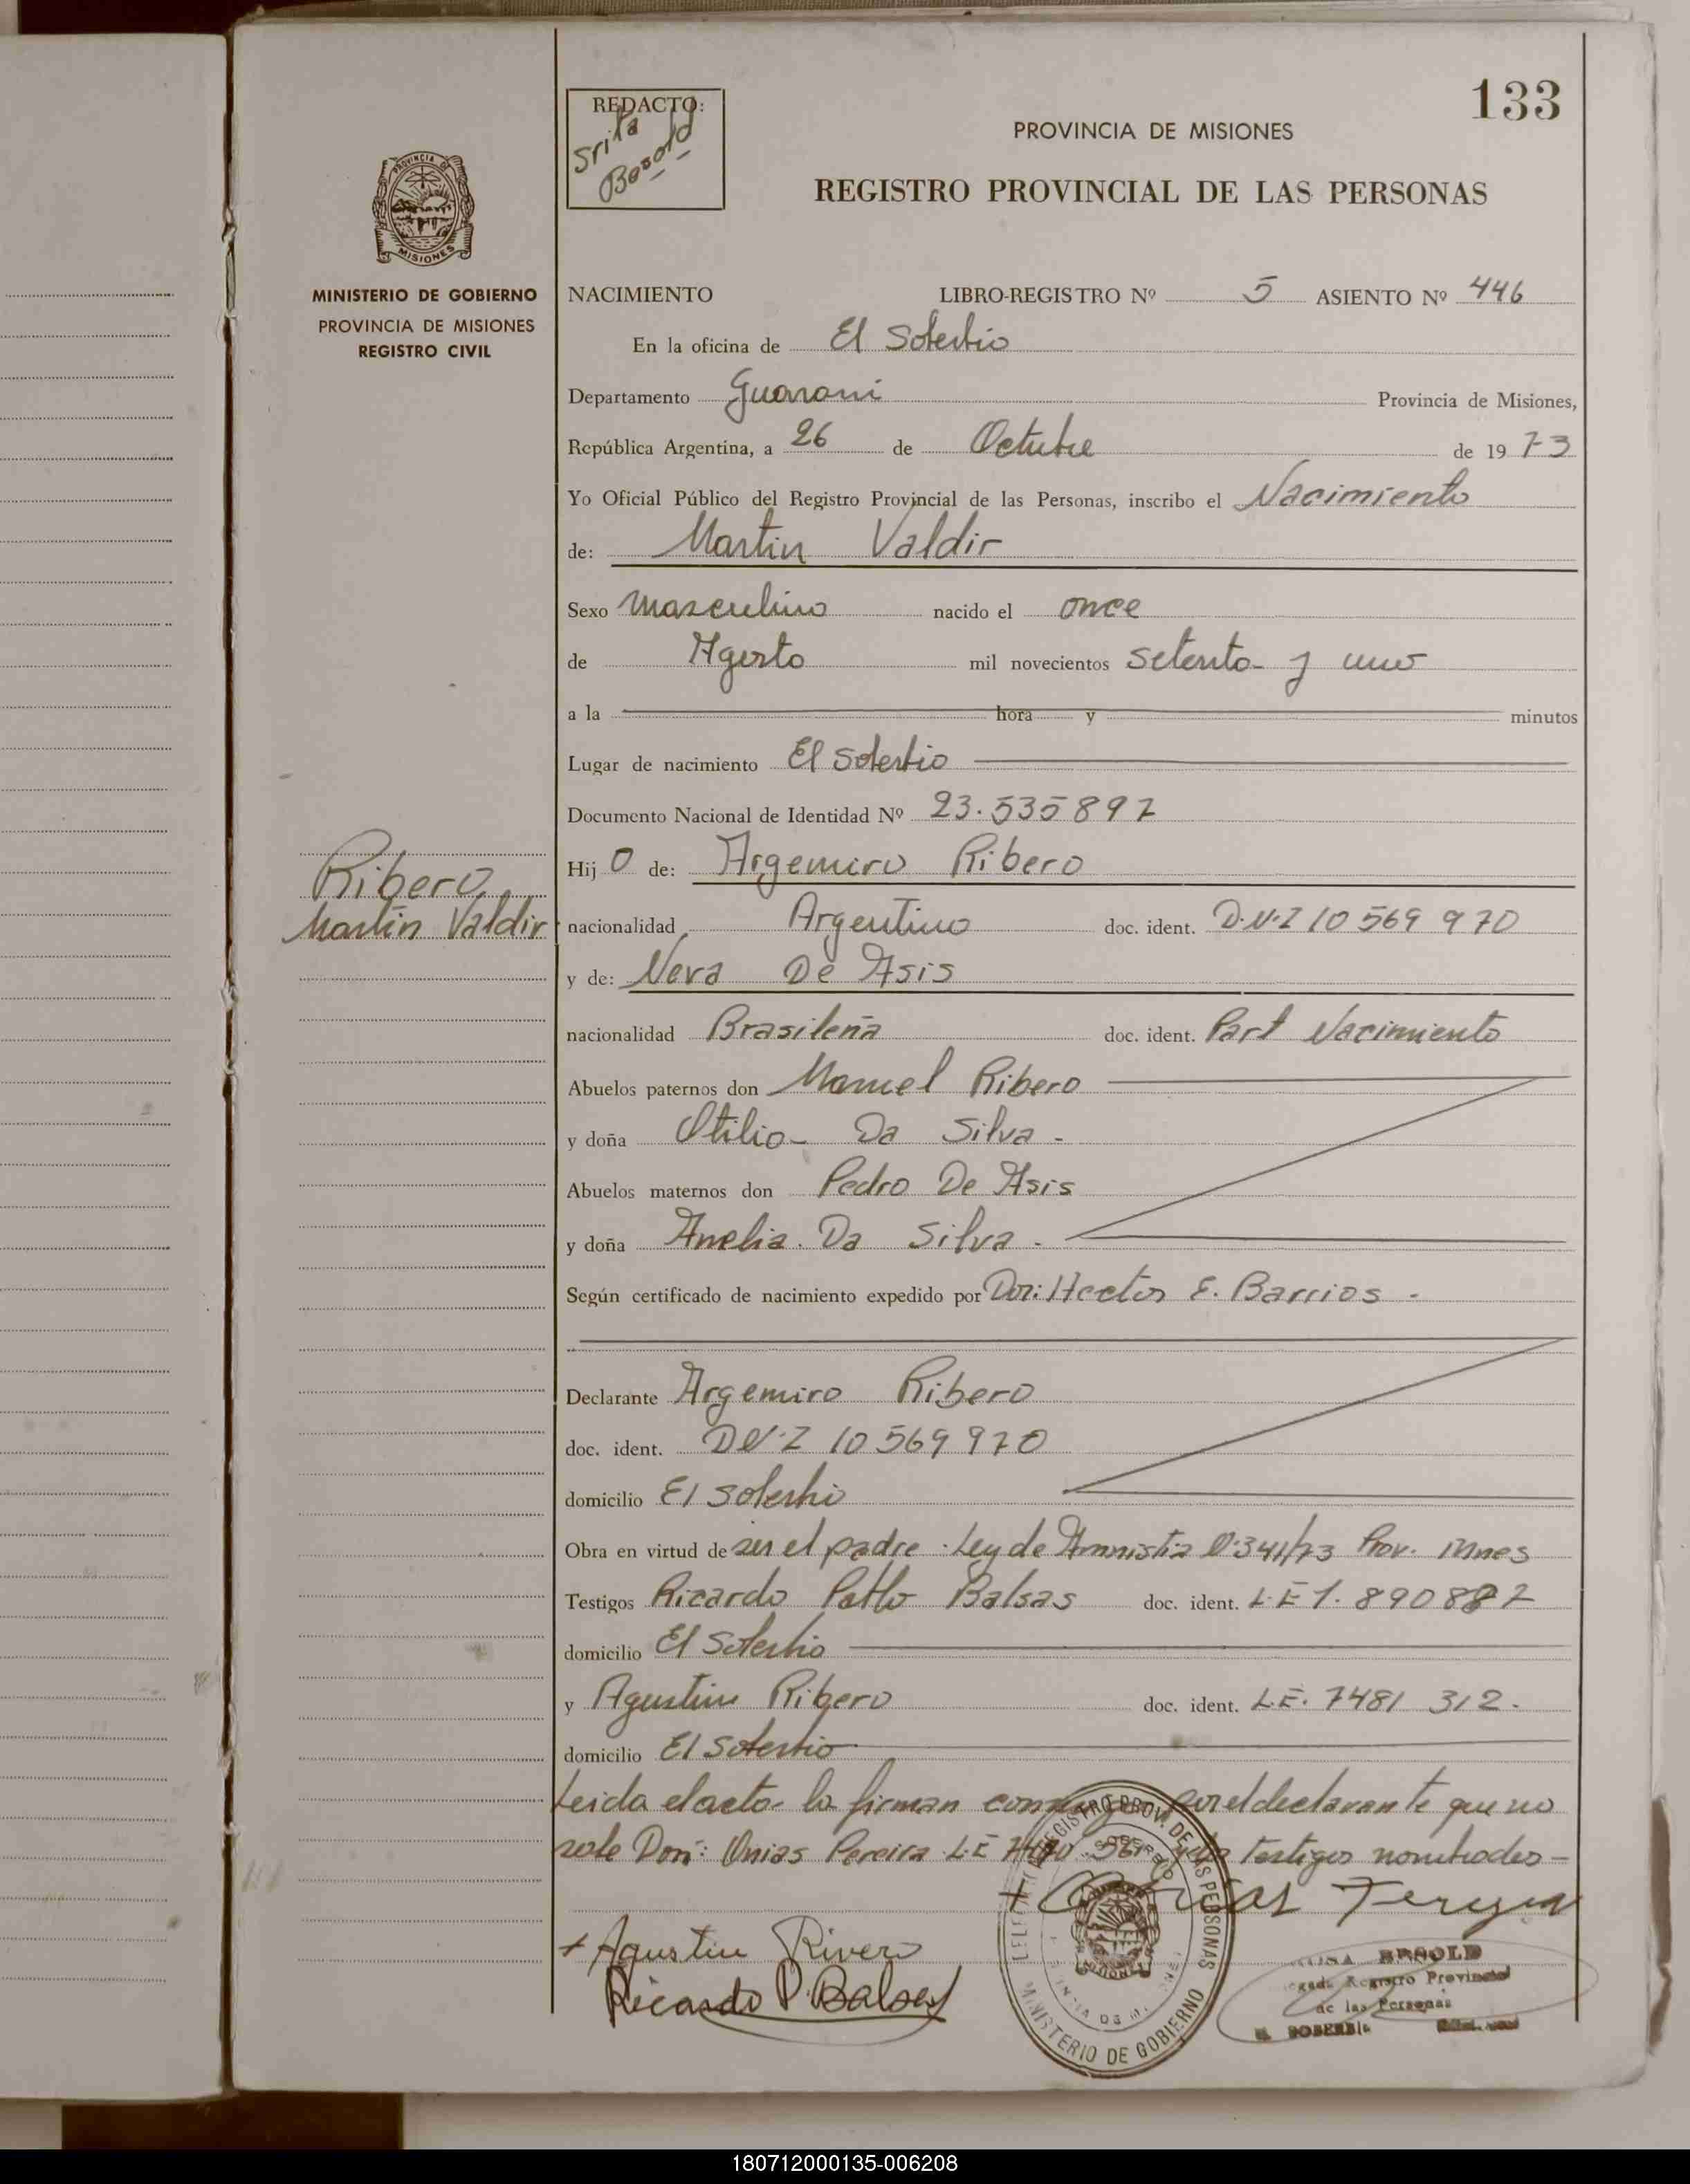 133
REDACTO:
Srita
Besold
PROVINCIA DE MISIONES
REGISTRO PROVINCIAL DE LAS PERSONAS
PROVINCIA DE
MISIONES
MINISTERIO DE GOBIERNO
PROVINCIA DE MISIONES
REGISTRO CIVIL
NACIMIENTO LIBRO-REGISTRO Nº 5 ASIENTO Nº 446
En la oficina de El Soberbio
Departamento Guarani Provincia de Misiones,
República Argentina, a 26 de Octubre de 19 73
Yo Oficial Público del Registro Provincial de las Personas, inscribo el Nacimiento
de: Martin Valdir
Sexo Masculino nacido el once
de Agosto mil novecientos setenta y uno
a la hora y minutos
Lugar de nacimiento El Soberbio
Documento Nacional de Identidad Nº 23.535897
Hij O de: Argemiro Ribero
Ribero
Martin Valdir
nacionalidad Argentino doc. ident. D.N.I 10 569 970
y de: Neva De Asis
nacionalidad Brasileña doc. ident. Part Nacimiento
Abuelos paternos don Manuel Ribero
y doña Otilia Da Silva -
Abuelos maternos don Pedro De Asis
y doña Amelia. Da Silva -
Según certificado de nacimiento expedido por Don: Hector E. Barrios -
Declarante Argemiro Ribero
doc. ident. DN.I 10 569 970
domicilio El Soberbio
Obra en virtud de ser el padre - Ley de Amnistia Nº 341/73 Prov. Mnes
Testigos Ricardo Pablo Balsas doc. ident. L.E 1.890887
domicilio El Soberbio
y Agustin Ribero doc. ident. L.E. 7481 312.
domicilio El Soberbio
Leida el acta la firman conmigo por el declarante que no
sabe Don: Onias Pereira L.E testigos nombrados -
+ Agustin Rivero
Ricardo P. Balsas
REGISTRO PROV. DE LAS PERSONAS
MINISTERIO DE GOBIERNO
BESOLD
Registro Provincial
de las Personas
EL SOBERBIO
180712000135-006208